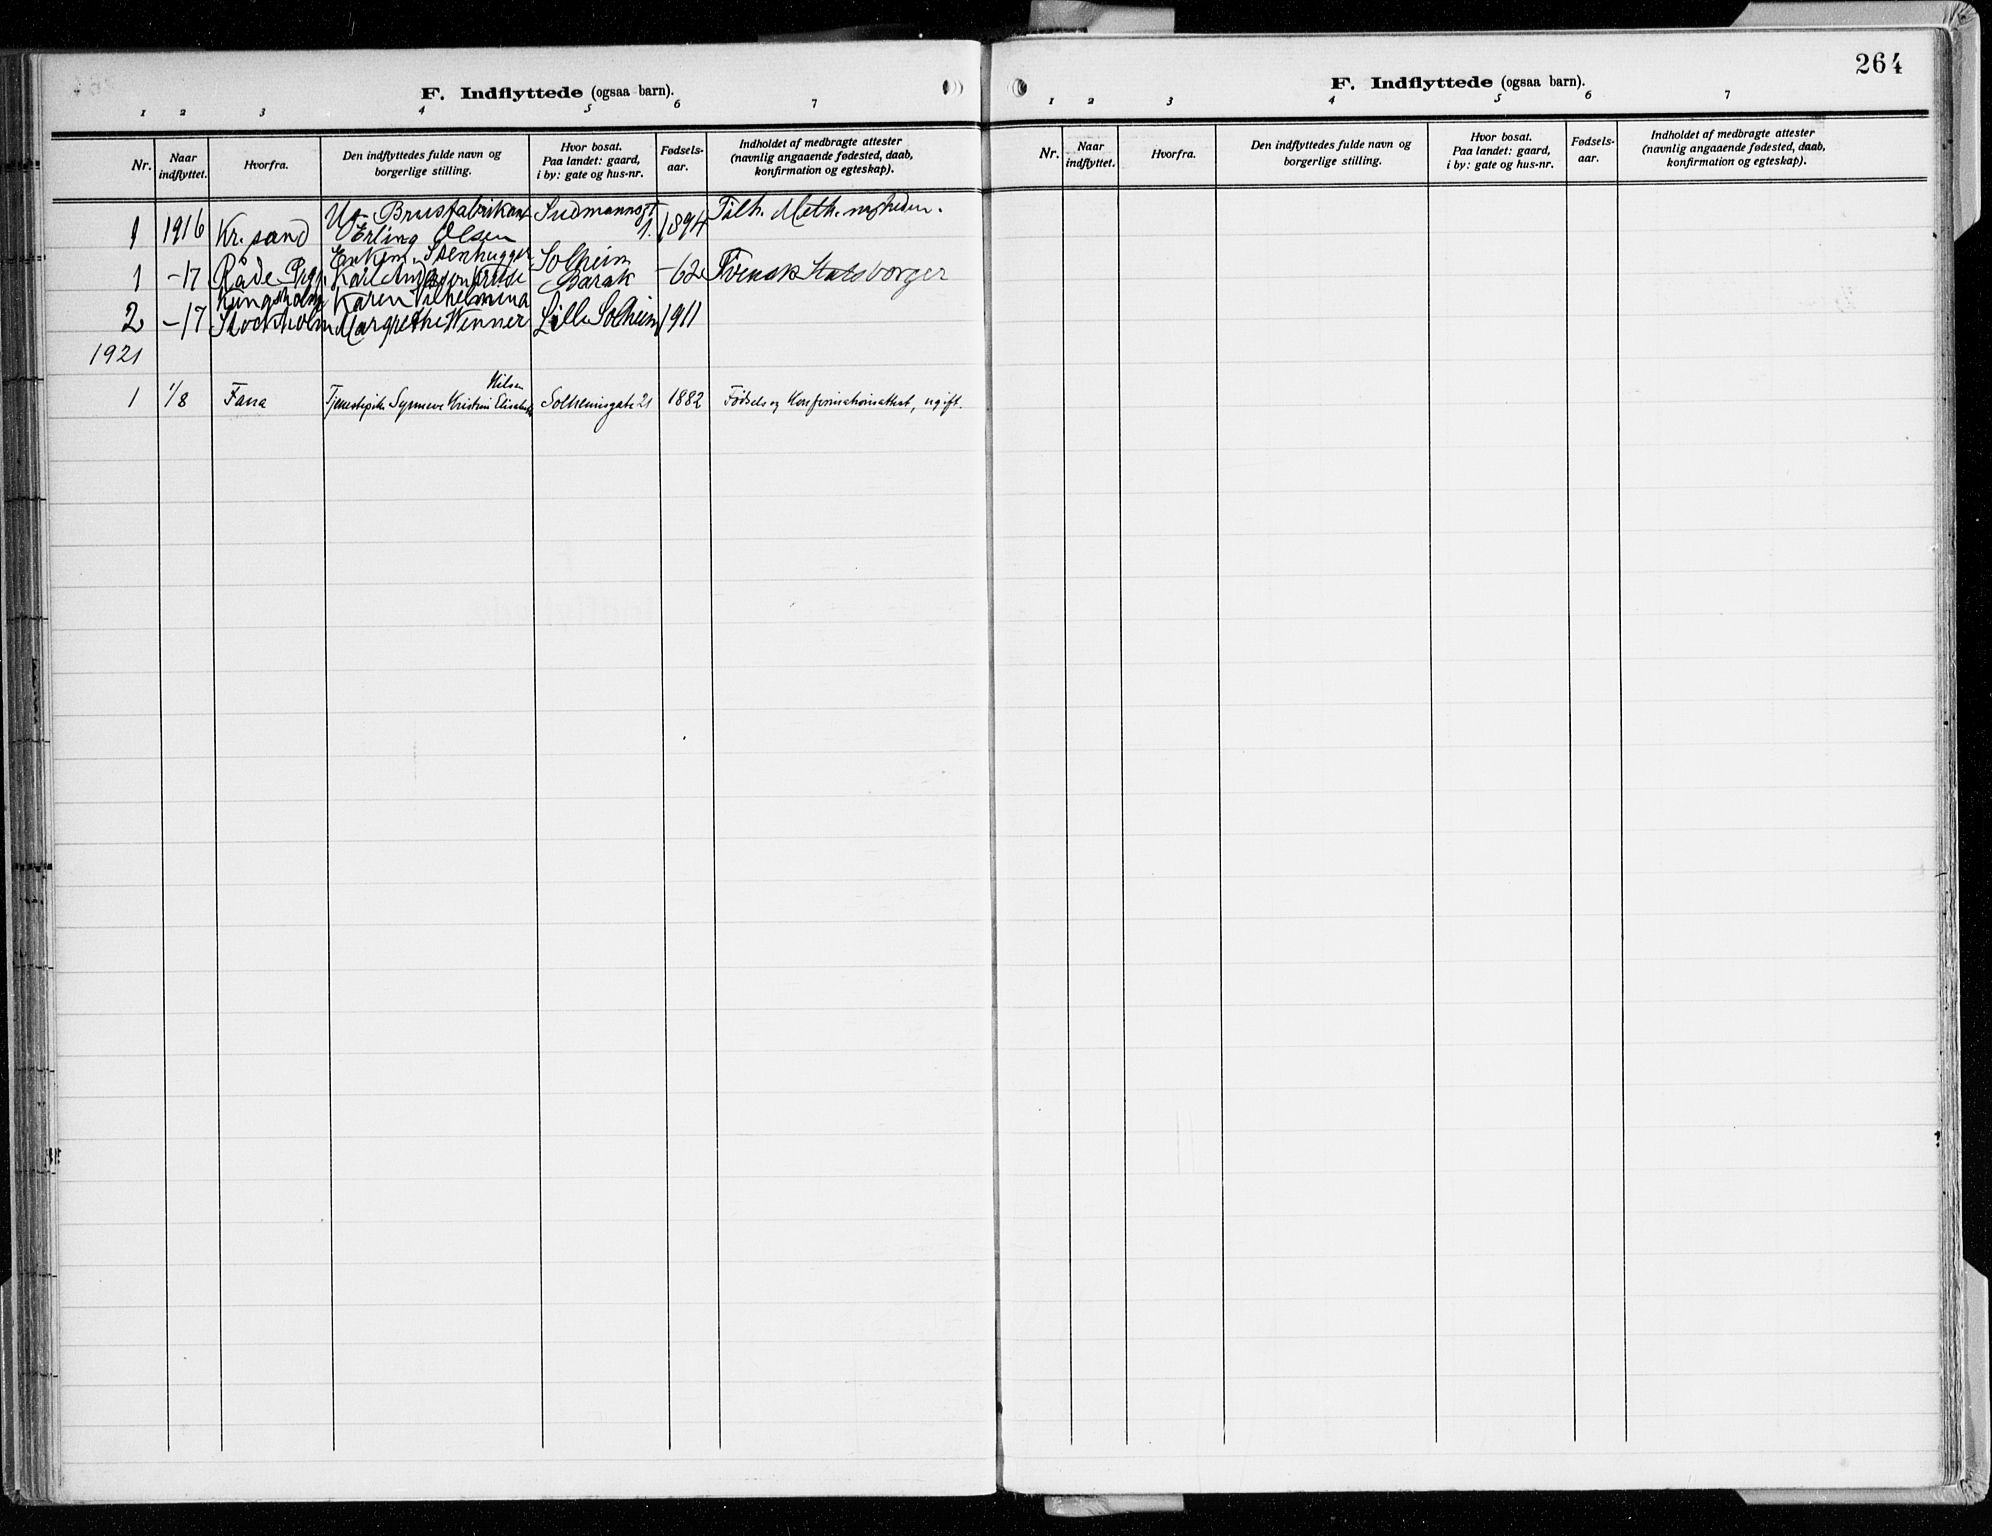 F. Indflyttede (ogsaa barn).
1 2 3 4 5 6 7
Nr. Naar indflyttet. Hvorfra. Den indflyttedes fulde navn og borgerlige stilling. Hvor bosat. Paa landet: gaard, i by: gate og hus-nr. Fødsels-aar. Indholdet af medbragte attester (navnlig angaaende fødested, daab, konfirmation og egteskap).
Brusfabrikant
1 1916 Kr. sand Erling Olsen 1. 1894 Tilh. Meth. mgheden.
Enkem. Stenhugger Solheim
1 -17 Råde Karl Barak -62 Svensk Statsborger
Kungsholm Karen Vilhelmina
2 -17 Stockholm Margrethe Wenner Lille Solheim 1911
1921
Nilsen
1 1/8 Fana Tjenestepike Synneve Kristine Solheimsgate 21 1882 Fødsels og Konfirmationsattest, ugift.
264
F. Indflyttede (ogsaa barn).
1 2 3 4 5 6 7
Nr. Naar indflyttet. Hvorfra. Den indflyttedes fulde navn og borgerlige stilling. Hvor bosat. Paa landet: gaard, i by: gate og hus-nr. Fødsels-aar. Indholdet af medbragte attester (navnlig angaaende fødested, daab, konfirmation og egteskap).